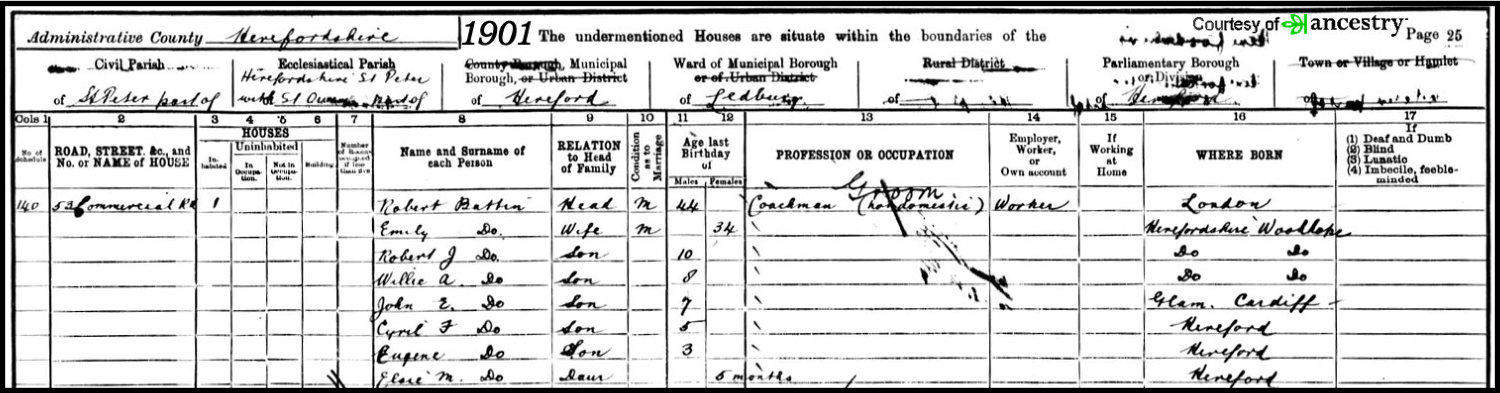 Courtesy of ancestry
Administrative County Herefordshire 1901 The undermentioned Houses are situate within the boundaries of the Page 25
Civil Parish
of St Peter part of
Ecclesiastical Parish
Herefordshire St Peter
with St part of
County Borough, Municipal
Borough, or Urban District
of Hereford
Ward of Municipal Borough
or of Urban District
of Ledbury
Rural District
of
Parliamentary Borough
or Division
of Hereford
Town or Village or Hamlet
of
Cols 1 2 3 4 5 6 7 8 9 10 11 12 13 14 15 16 17
No. of Schedule
ROAD, STREET, &c., and
No. or NAME of HOUSE
HOUSES
Inhabited
Uninhabited
In Occupation.
Not in Occupation.
Building
Number of Rooms occupied if less than five
Name and Surname of
each Person
RELATION
to Head
of Family
Condition as to Marriage
Age last
Birthday
of
Males Females
PROFESSION OR OCCUPATION
Employer,
Worker,
or
Own account
If
Working
at
Home
WHERE BORN
If
(1) Deaf and Dumb
(2) Blind
(3) Lunatic
(4) Imbecile, feeble-
minded
Groom
140 53 Commercial Rd 1 Robert Battin Head M 44 Coachman (not domestic) Worker London
Emily Do. Wife M 34 Herefordshire Woolhope
Robert J Do. Son 10 Do Do
Willie A. Do Son 8 Do Do
John E. Do Son 7 Glam. Cardiff
Cyril F Do Son 5 Hereford
Eugene Do Son 3 Hereford
Elsie M. Do Daur 5 months Hereford